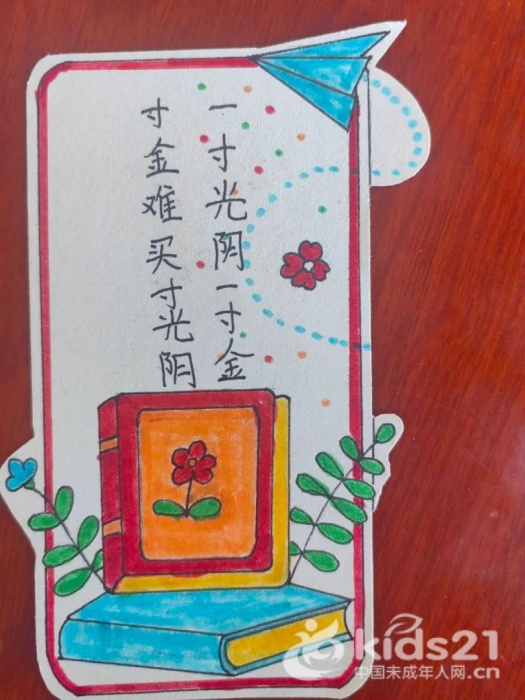 一寸光阴一寸金
寸金难买寸光阴
kids21
中国未成年人网.cn